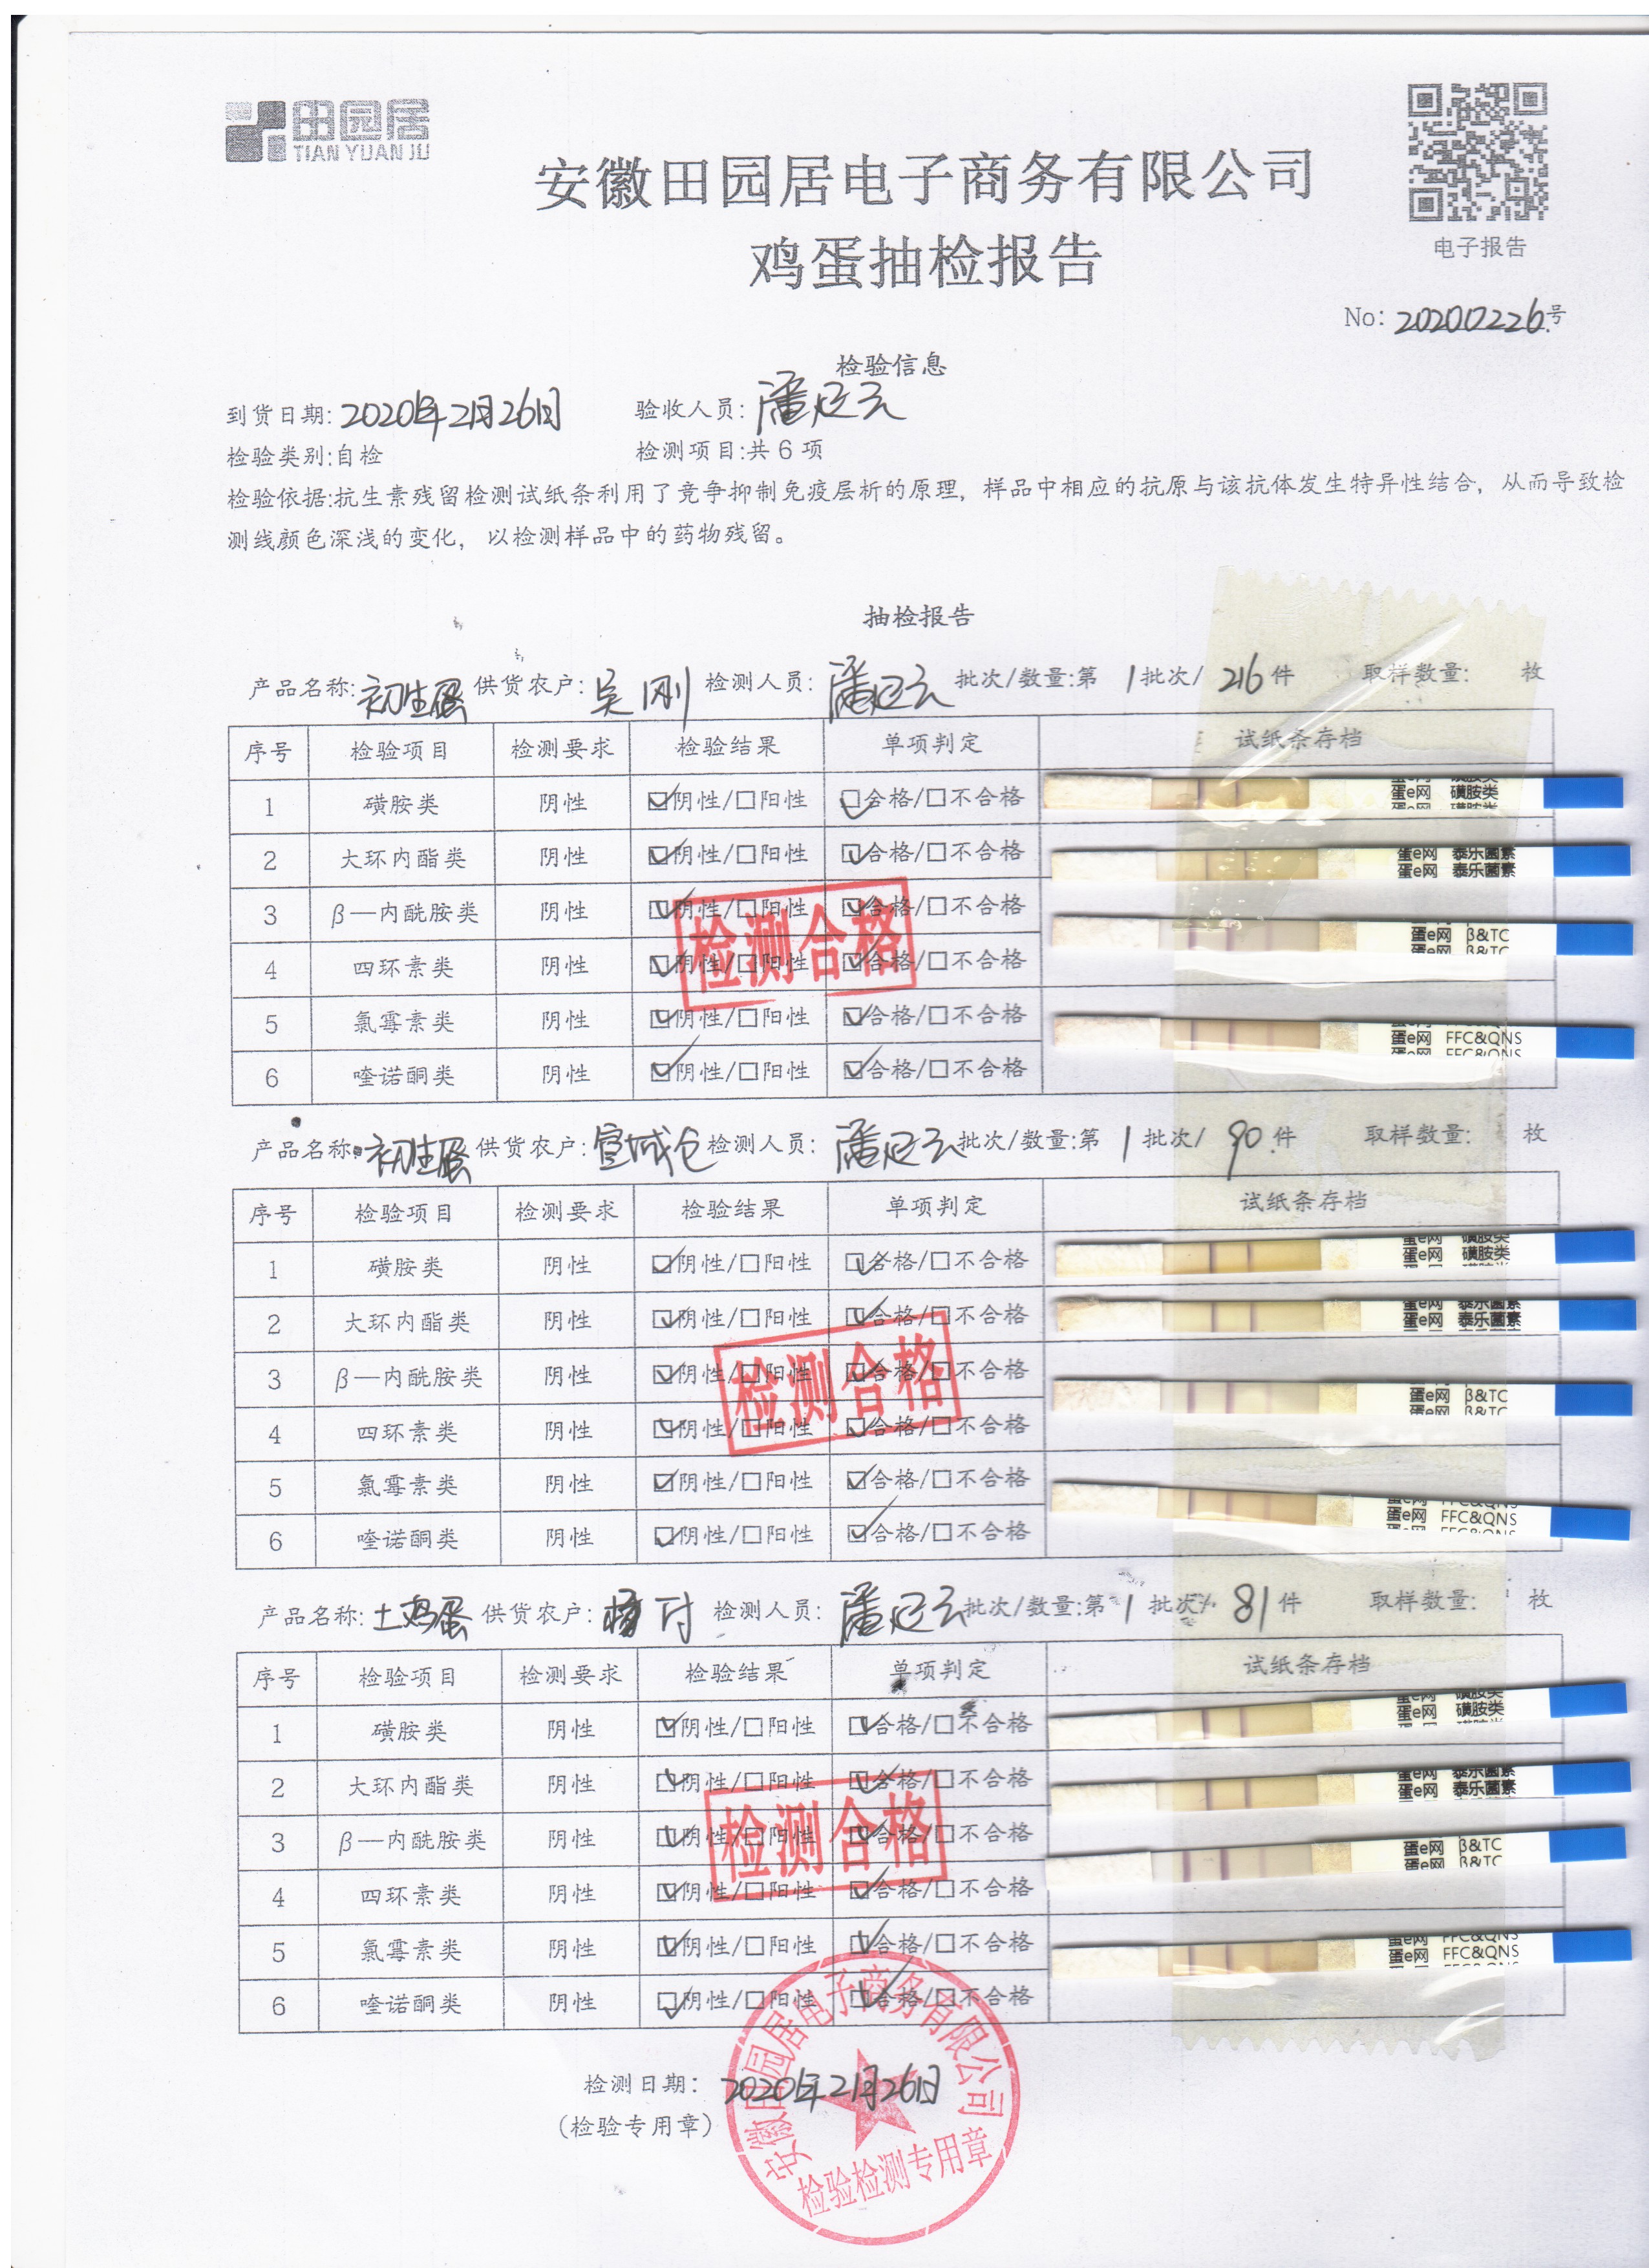 田园居
TIAN YUAN JU
安徽田园居电子商务有限公司
鸡蛋抽检报告
电子报告
No: 20200226号
检验信息
到货日期: 2020年2月26日 验收人员:
检验类别:自检 检测项目:共6项
检验依据:抗生素残留检测试纸条利用了竞争抑制免疫层析的原理，样品中相应的抗原与该抗体发生特异性结合，从而导致检
测线颜色深浅的变化，以检测样品中的药物残留。
抽检报告
产品名称: 初生蛋 供货农户: 吴刚 检测人员: 批次/数量:第 1 批次/ 216 件 取样数量: 枚
序号 检验项目 检测要求 检验结果 单项判定 试纸条存档
1 磺胺类 阴性 ☑阴性/□阳性 ☑合格/□不合格 蛋e网 磺胺类
2 大环内酯类 阴性 ☑阴性/□阳性 ☑合格/□不合格 蛋e网 泰乐菌素
3 β—内酰胺类 阴性 ☑阴性/□阳性 ☑合格/□不合格 蛋e网 β&TC
4 四环素类 阴性 ☑阴性/□阳性 ☑合格/□不合格
5 氯霉素类 阴性 ☑阴性/□阳性 ☑合格/□不合格 蛋e网 FFC&QNS
6 喹诺酮类 阴性 ☑阴性/□阳性 ☑合格/□不合格
检测合格
产品名称: 初生蛋 供货农户: 宣城仓 检测人员: 批次/数量:第 1 批次/ 90 件 取样数量: 枚
序号 检验项目 检测要求 检验结果 单项判定 试纸条存档
1 磺胺类 阴性 ☑阴性/□阳性 ☑合格/□不合格 蛋e网 磺胺类
2 大环内酯类 阴性 ☑阴性/□阳性 ☑合格/□不合格 蛋e网 泰乐菌素
3 β—内酰胺类 阴性 ☑阴性/□阳性 ☑合格/□不合格 蛋e网 β&TC
4 四环素类 阴性 ☑阴性/□阳性 ☑合格/□不合格
5 氯霉素类 阴性 ☑阴性/□阳性 ☑合格/□不合格 蛋e网 FFC&QNS
6 喹诺酮类 阴性 ☑阴性/□阳性 ☑合格/□不合格
检测合格
产品名称: 土鸡蛋 供货农户: 检测人员: 批次/数量:第 1 批次/ 81 件 取样数量: 枚
序号 检验项目 检测要求 检验结果 单项判定 试纸条存档
1 磺胺类 阴性 ☑阴性/□阳性 ☑合格/□不合格 蛋e网 磺胺类
2 大环内酯类 阴性 ☑阴性/□阳性 ☑合格/□不合格 蛋e网 泰乐菌素
3 β—内酰胺类 阴性 ☑阴性/□阳性 ☑合格/□不合格 蛋e网 β&TC
4 四环素类 阴性 ☑阴性/□阳性 ☑合格/□不合格
5 氯霉素类 阴性 ☑阴性/□阳性 ☑合格/□不合格 蛋e网 FFC&QNS
6 喹诺酮类 阴性 ☑阴性/□阳性 ☑合格/□不合格
检测合格
检测日期: 2020年2月26日
(检验专用章)
安徽田园居电子商务有限公司
检验检测专用章